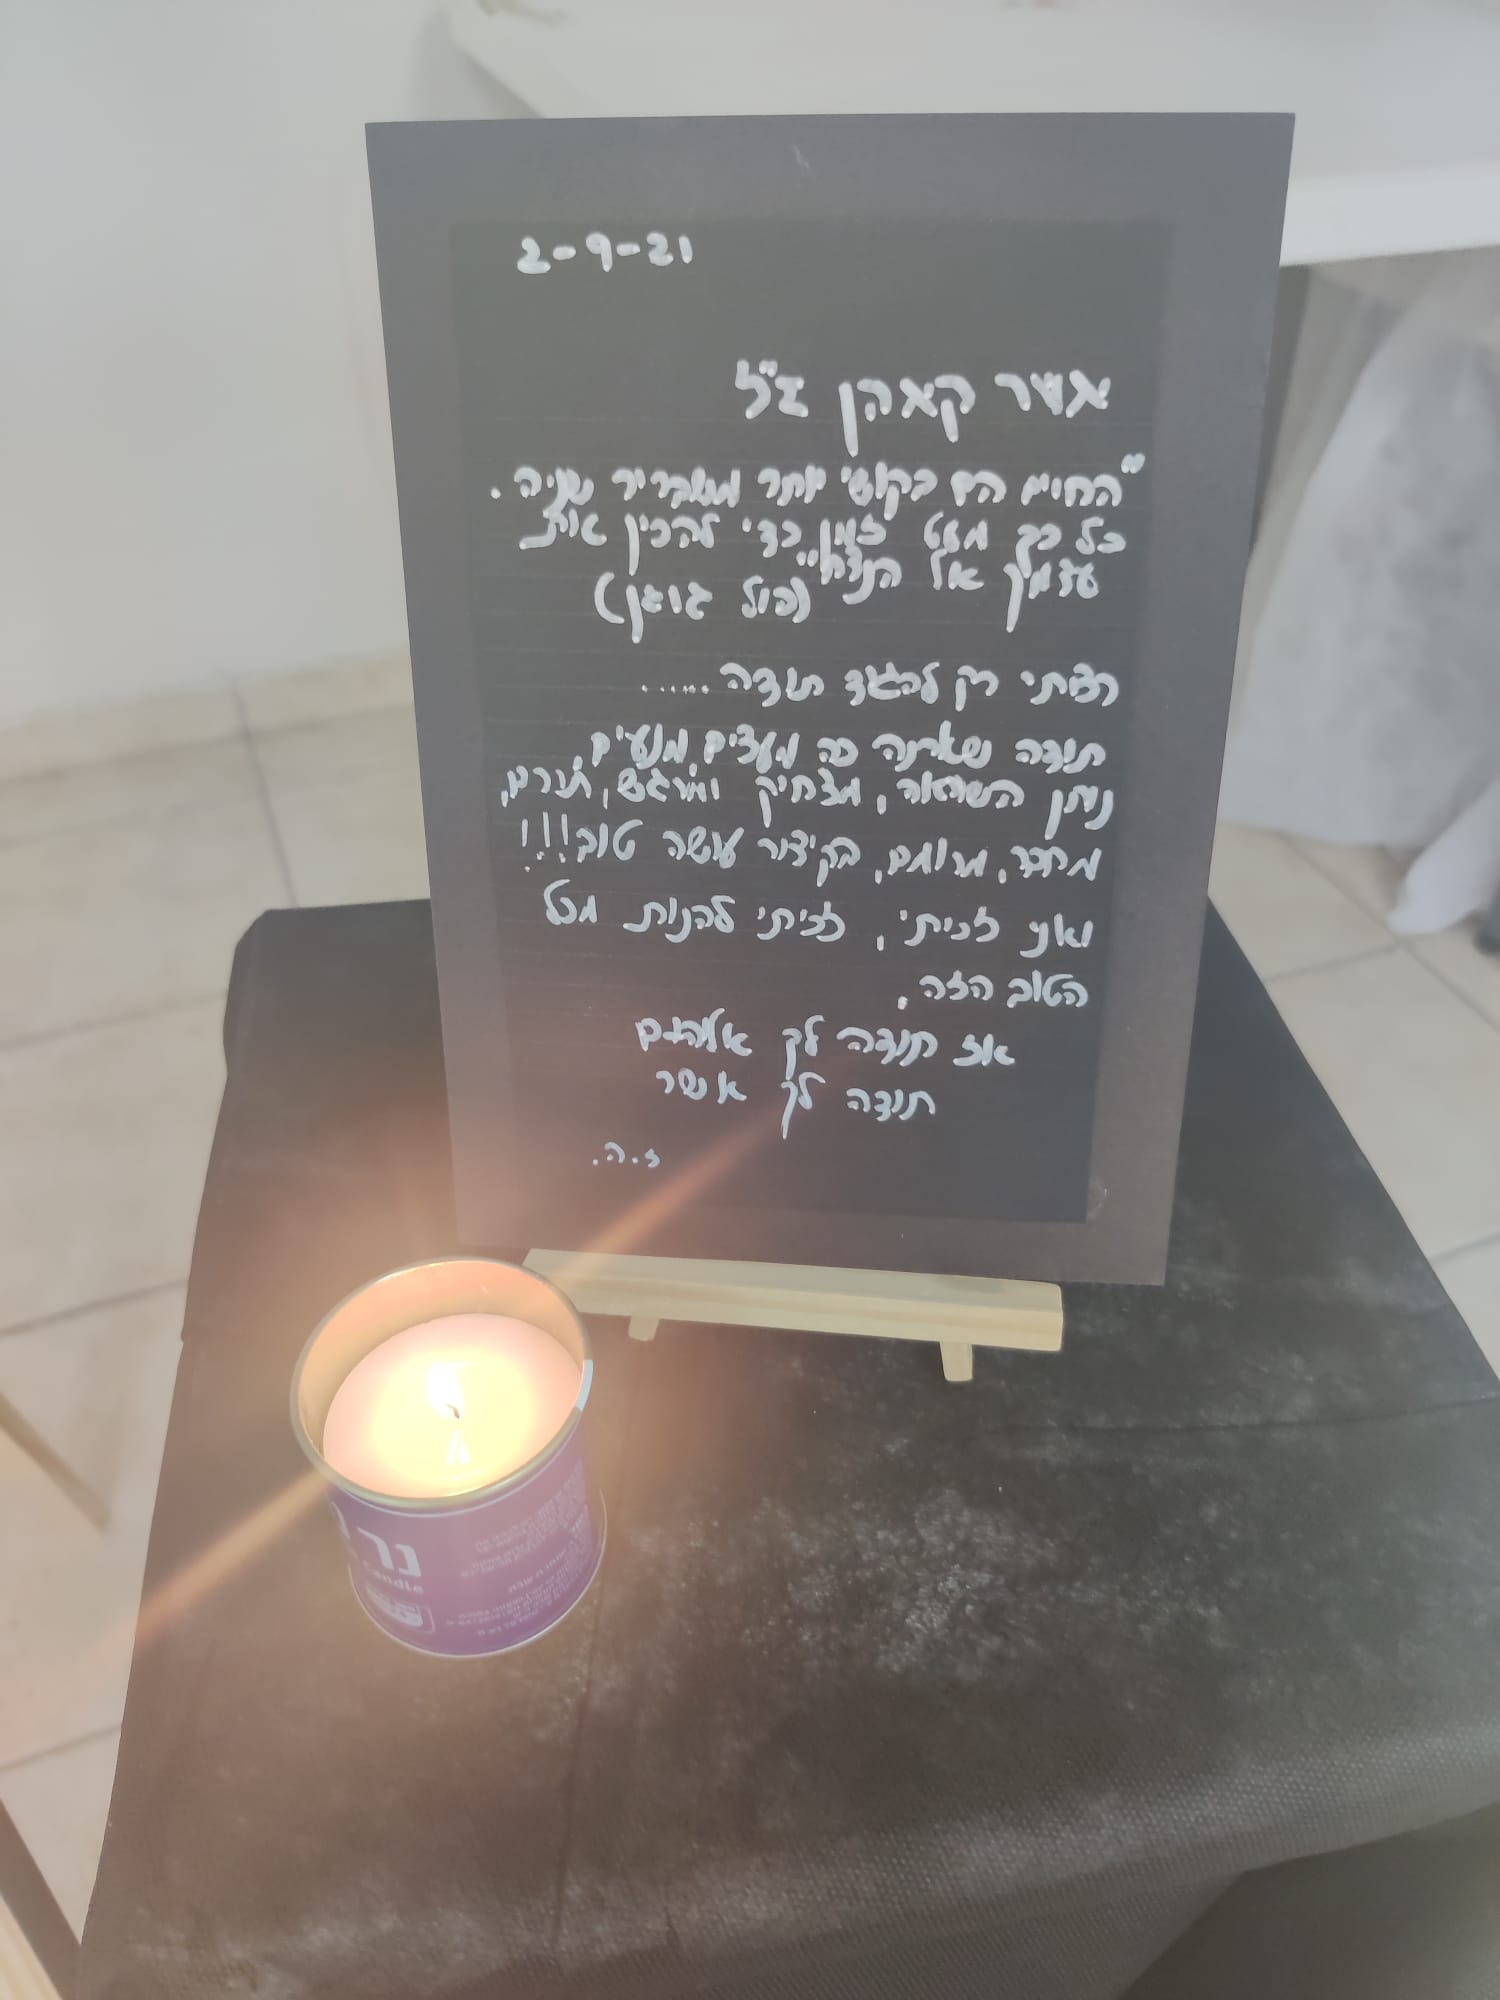 2-9-21
אשר קאהן ז"ל
"החיים הם בקושי יותר משבריר שניה.
כל כך מעט זמן כדי להכין את
עצמך אל הנצח" (פול גוגן)
רציתי רק להגיד תודה.....
תודה שאתה כה מעצים, מנעים,
נותן השראה, מצחיק ומרגש, תורם,
מחבר, מרומם, בקיצור עושה טוב!!!
ואני זכיתי, זכיתי להנות מכל
הטוב הזה.
אז תודה לך אלוהים
תודה לך אשר
ז.ה.
נר
candle